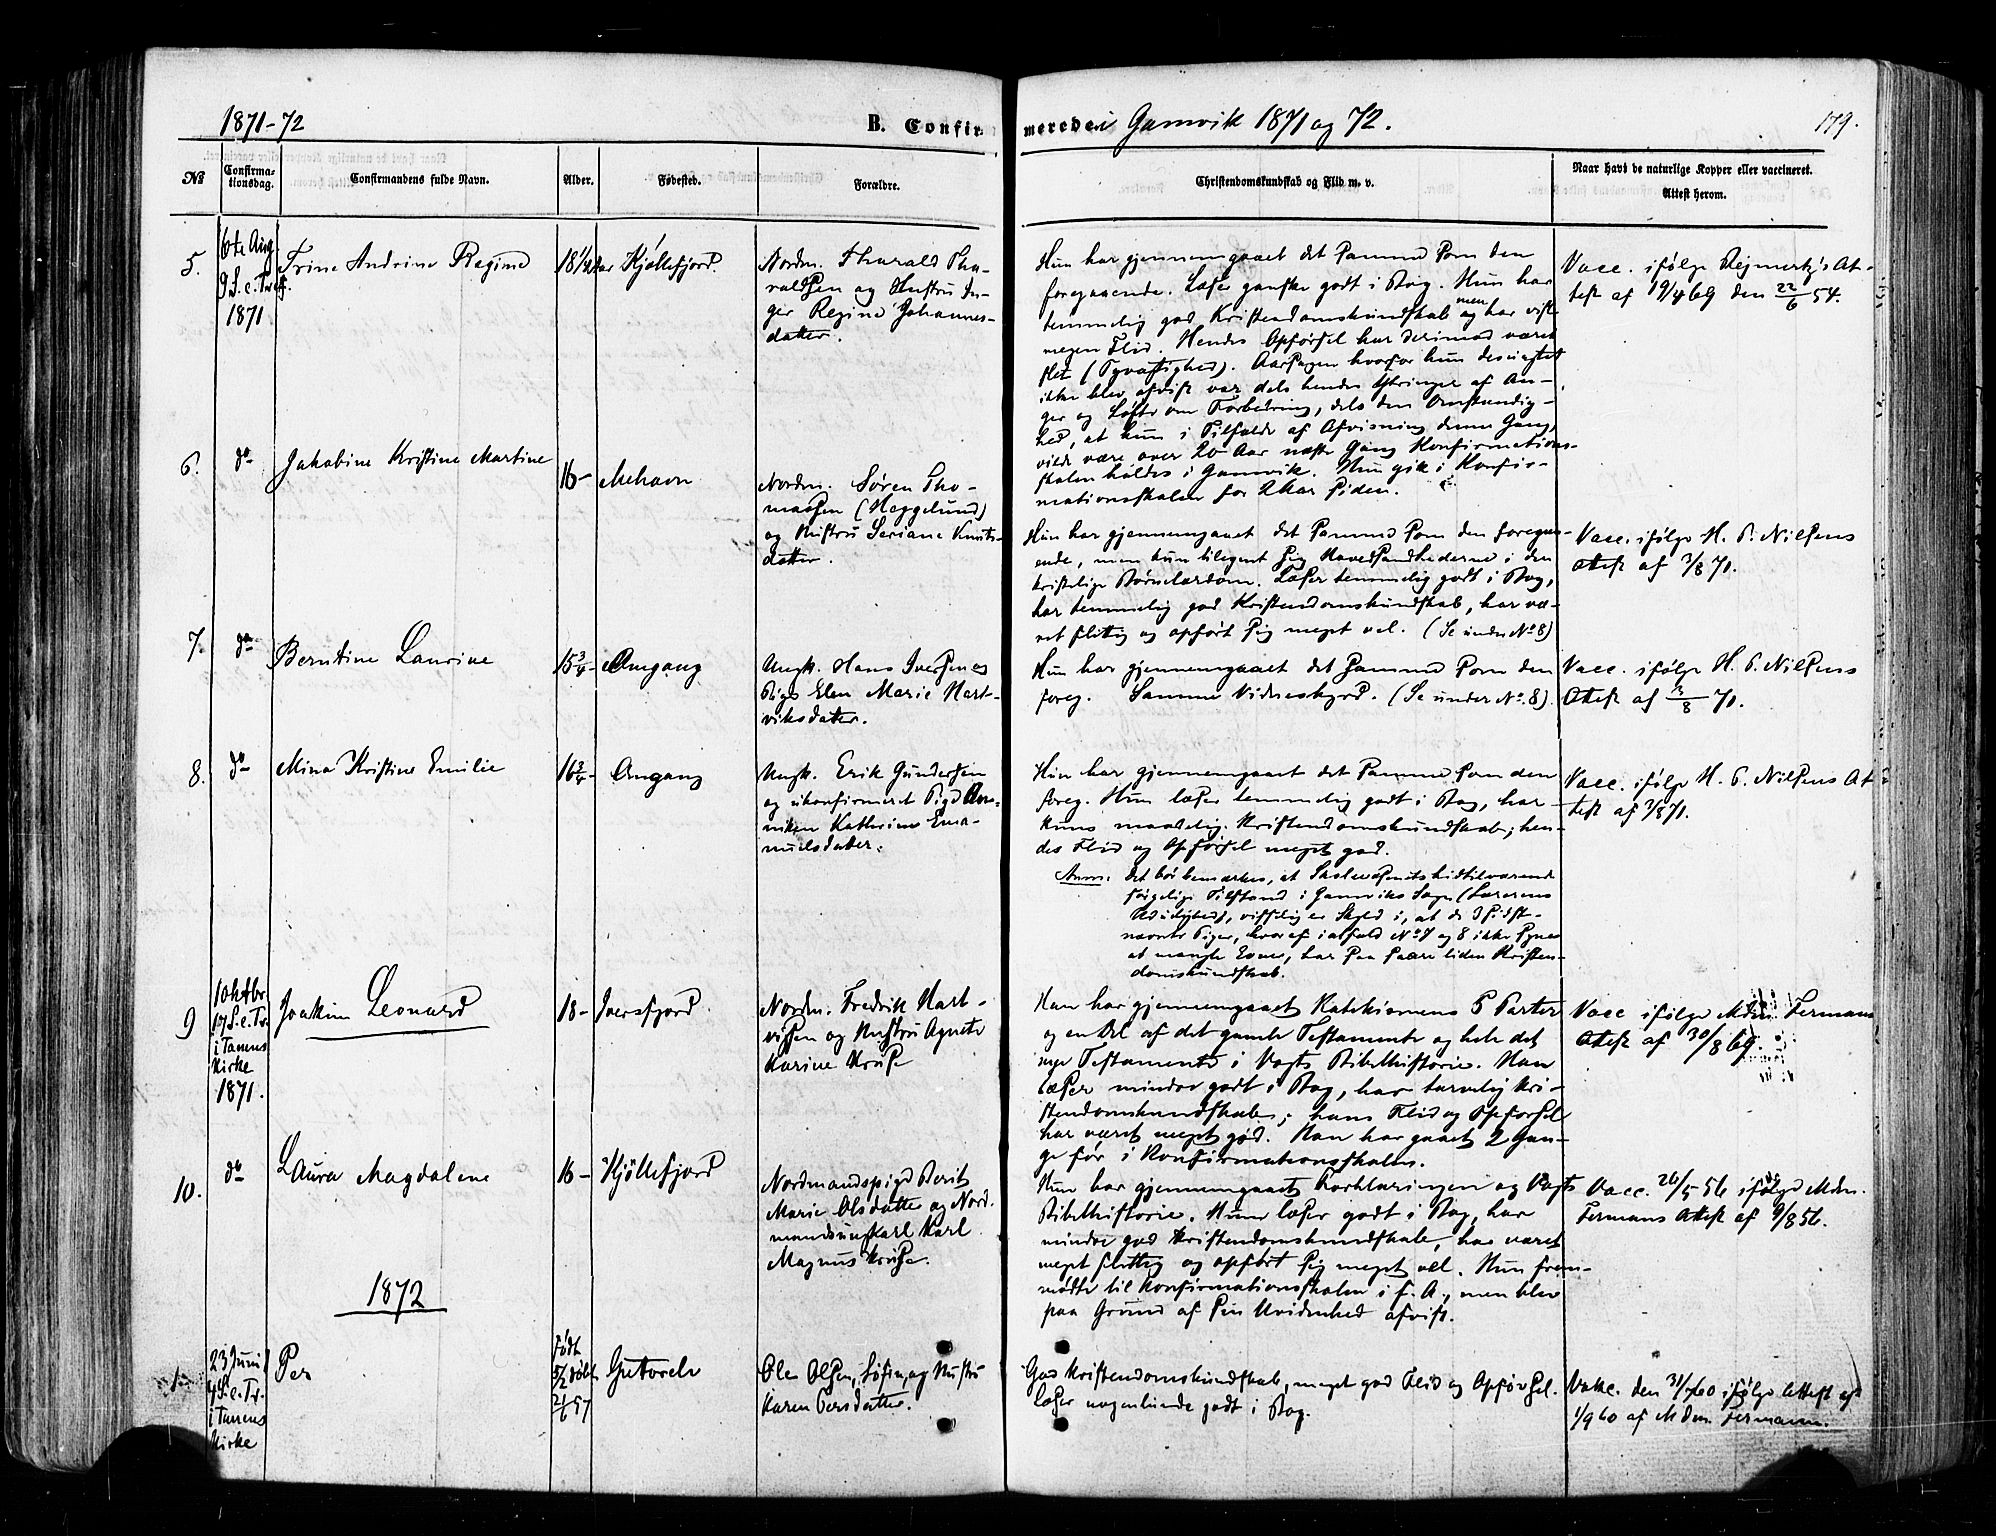 1871-72
B. Confirmerede i Gamvik 1871 og 72.
179.
No
Confirmationsdag.
Confirmandens fulde Navn.
Alder.
Fødested.
Forældre.
Christendomskundskab og Flid m. v.
Naar havt de naturlige Kopper eller vaccineret.
Attest herom.
5.
6te Aug.
9 S. e. Tref.
1871
Trine Andrine Regine
18 1/2 Aar
Kjøllefjord.
Nordm. Tharald Tha-
raldsen og Hustru In-
ger Regine Johannes-
datter.
Hun har gjennemgaaet det samme som den
foregaaende. Læser ganske godt i Bog. Hun har
temmelig god Kristendomskundskab og har vist
men
megen Flid. Hendes Opførsel har derimod været
slet (Tyvagtighed). Aarsagen hvorfor hun desuagtet
ikke blev afvist var dels hendes Ytringer af An-
ger og Løfte om Forbedring, dels den Omstændig-
hed, at hun i Tilfælde af Afvisning denne Gang,
vilde være over 20 Aar næste Gang Konfirmations-
skolen holdes i Gamvik. Hun gik i Konfir-
mationsskolen for 2 Aar siden.
Vacc. ifølge At-
test af 19/4 69 den 22/6 54.
6.
do
Jakobine Kristine Martine
16-
Mehavn
Nordm. Søren Tho-
massen (Heggelund)
og Hustru Seriane Knuts-
datter.
Hun har gjennemgaaet det samme som den foregaa-
ende, men kun tilegnet sig Hovedsandhederne i den
kristelige Børnelærdom. Læser temmelig godt i Bog,
har temmelig god Kristendomskundskab, har væ-
ret flittig og opført sig meget vel. (Se under No 8)
Vacc. ifølge H. P. Nilsens
Attest af 3/8 71.
7.
do
Berntine Laurine
15 3/4-
Omgang
Ungk. Hans Iversen og
Pige Elen Marie Hart-
viksdatter.
Hun har gjennemgaaet det samme som den
foreg. Samme Vidnesbyrd. (Se under No. 8).
Vacc. ifølge H. P. Nilsens
Attest af 3/8 71.
8.
do
Mina Kristine Emilie
16 3/4-
Omgang
Ungk. Erik Gundersen
og ukonfirmeret Pige An-
niken Kathrine Ema-
nuelsdatter.
Hun har gjennemgaaet det samme som den
foreg. Hun læser temmelig godt i Bog, har
kuns maadelig Kristendomskundskab; hen-
des Flid og Opførsel meget god.
Anm: Det bør bemærkes, at Skolevæsenets hidtilværende
sørgelige Tilstand i Gamviks Sogn (Lærerens
Udulighed), visselig er Skyld i, at de 3 sidst-
nævnte Piger, hvoraf ialfald No 7 og 8 ikke synes
at mangle Evner, har saa saare liden Kristen-
domskundskab.
Vacc. ifølge H. P. Nilsens At-
test af 3/8 71.
9
1 Oktbr.
17 S. e. Tr.
i Tanens
Kirke
1871.
Joakim Leonard
18-
Iversfjord
Nordm. Fredrik Hart-
vigsen og Hustru Agnete
Karine Kruse
Han har gjennemgaaet Katekismens 5 Parter
og en Del af det gamle Testamente og hele det
nye Testamente i Vogts Bibelhistorie. Han
læser mindre godt i Bog, har tarvelig Kri-
stendomskundskab; hans Flid og Opførsel
har været meget god. Han har gaaet 2 Gan-
ge før i Konfirmationsskolen.
Vacc ifølge Mdm Fermans
Attest af 30/8 69.
10.
do
Laura Magdalene
16-
Kjøllefjord
Nordmandspige Berit
Marie Olsdatter og Nord-
mandsungkarl Karl
Magnus Kruse.
Hun har gjennemgaaet Forklaringen og Vogts
Bibelhistorie. Hun læser godt i Bog, har
mindre god Kristendomskundskab, har været
meget flittig og opført sig meget vel. Hun frem-
mødte til Konfirmationsskolen i f. A., men blev
paa Grund af sin Uvidenhed afvist.
Vacc. 26/5 56 ifølge Mdm.
Fermans Attest af 9/8 56.
1872
1.
23 Juni
4 S. e. Tr.
i Tanens
Kirke
Per
Født
5/2 døbt
21/6 57
Gutvik
Ole Olsen, Søfin, og Hustru
Karen Persdatter.
God Kristendomskundskab, meget god Flid og Opførsel.
læser nogenlunde godt i Bog.
Vakc. den 31/7 60 ifølge Attest af
1/9 60 af Mdm Fermann.